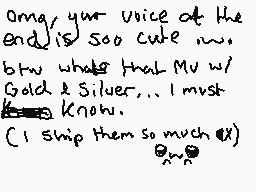 omg, your voice at the
end, is soo cute .w.
btw whats that MV w/
Gold & Silver,.. I must
know.
(I ship them so much XX)